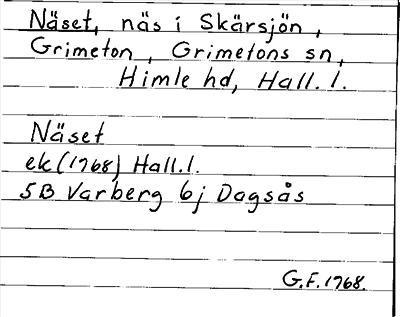 Näset, näs i Skärsjön,
Grimeton, Grimetons sn,
Himle hd, Hall. l.
Näset
ek (1768) Hall. l.
5B Varberg 6j Dagsås
G.F. 1968.